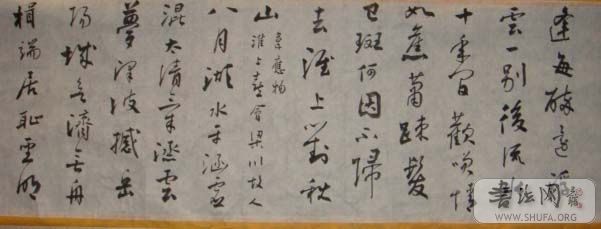 逢每醉還浮
雲一別後流
十年間歡笑情
如舊蕭疎鬢
已斑何因不歸
去淮上對秋
山
韋應物
淮上喜會梁川故人
八月湖水平涵虛
混太清氣蒸雲
夢澤波撼岳
陽城欲濟無舟
楫端居恥聖明
書法網
WWW.SHUFA.ORG